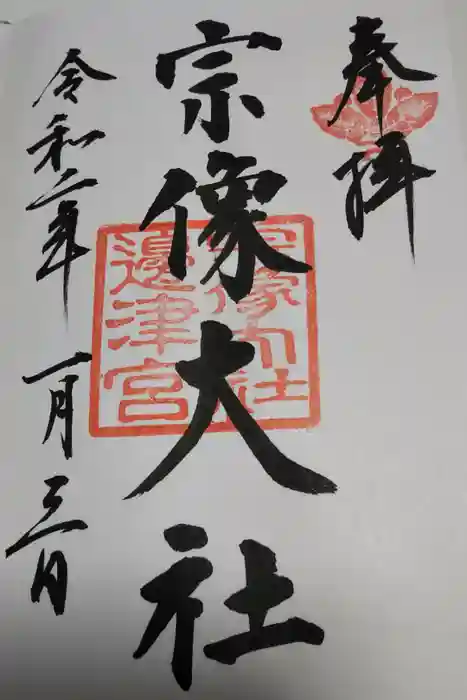 奉拝
宗像大社
宗像大社
邊津宮
令和二年一月三日